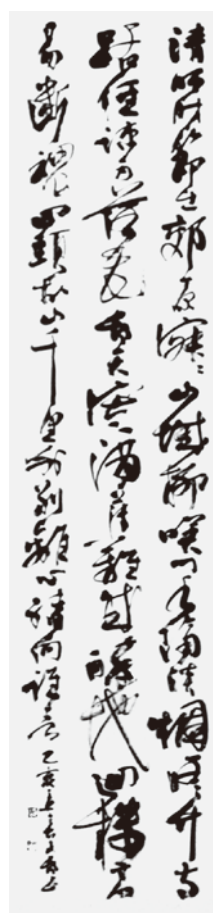 清明時節出郊原寂〻山城柳映門水隔淡烟修竹寺
路經疎雨落花村天寒酒薄難成醉地迥樓高
易斷魂回頭故山千里外別離心緒向誰言乙亥